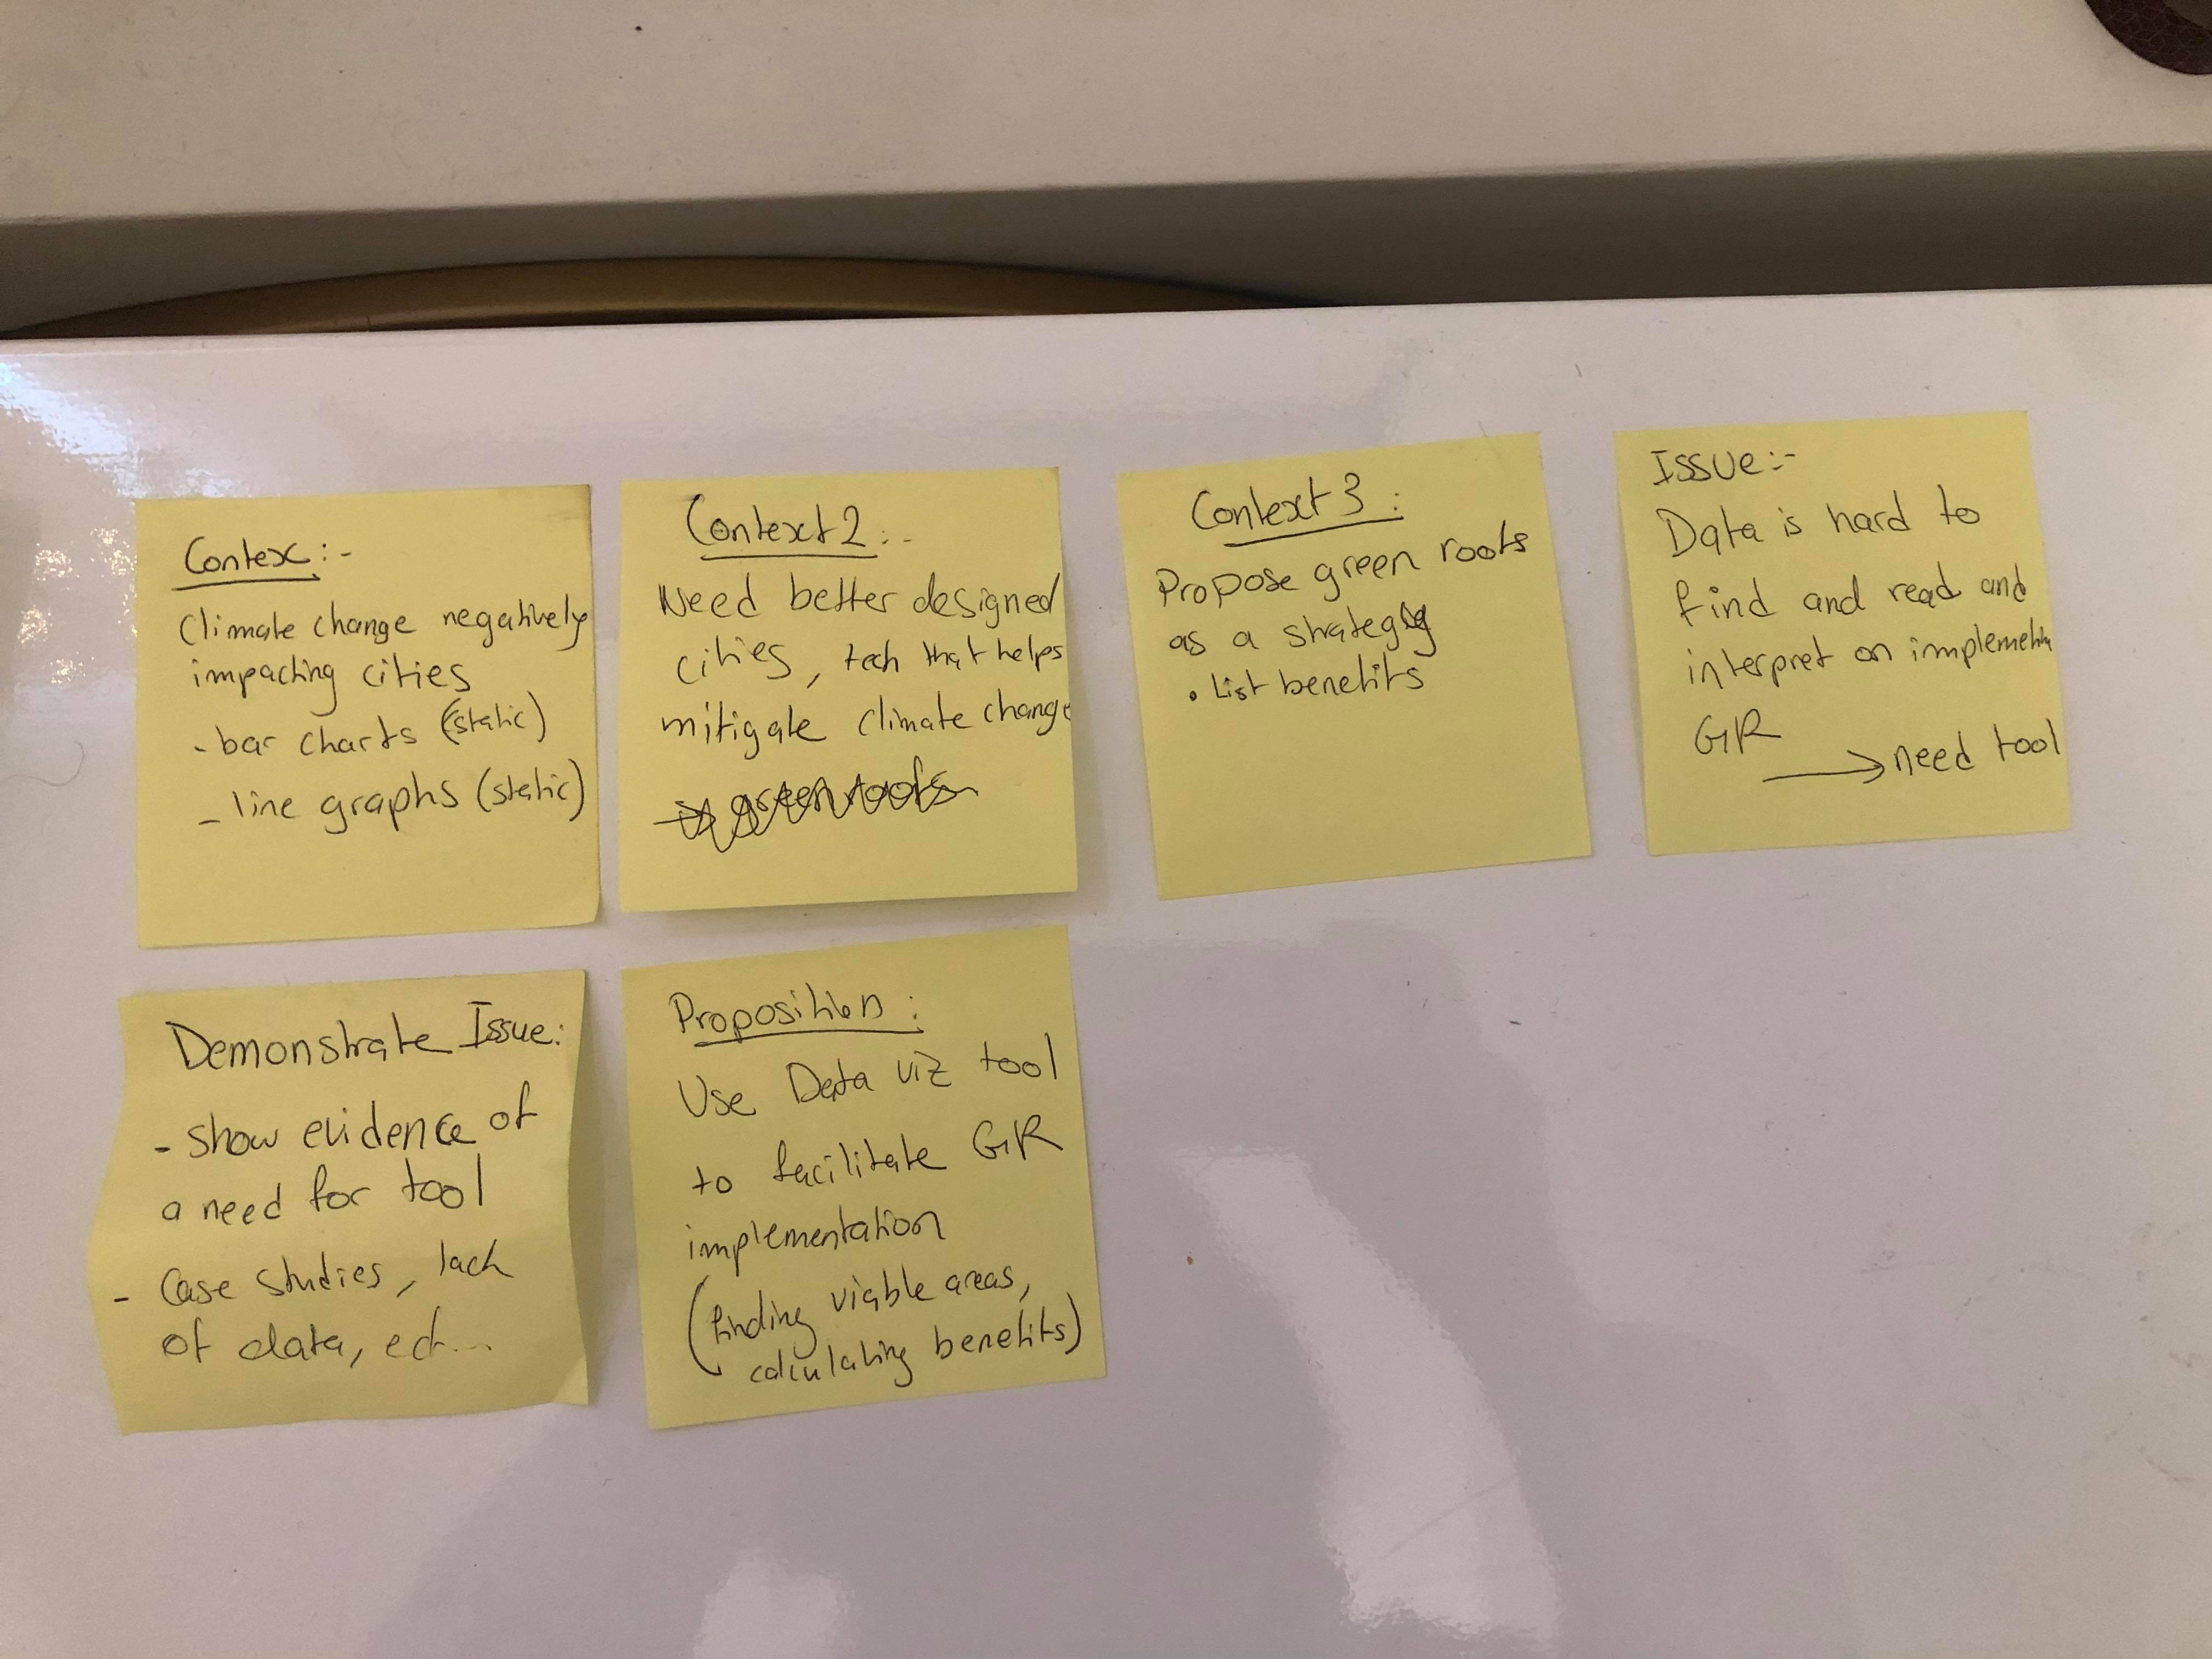 Contex:-
Climate change negatively
impacting cities
- bar charts (static)
- line graphs (static)
Context 2:-
Need better designed
cities, tech that helps
mitigate climate change
→ green roofs
Context 3:
Propose green roofs
as a strategy
• List benefits
Issue:-
Data is hard to
find and read and
interpret on
GR
→ need tool
Demonstrate Issue:
- Show evidence of
a need for tool
- Case studies, lack
of data, ect...
Proposition:
Use Data viz tool
to facilitate GR
implementation
(finding viable areas,
calculating benefits)